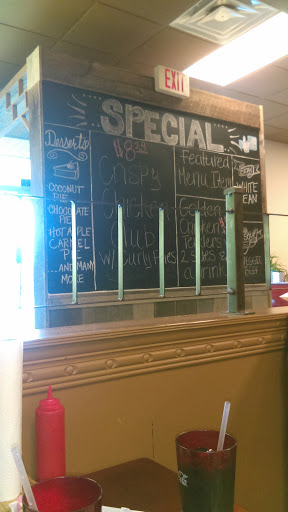 EXIT
SPECIAL
Desserts
COCONUT
PIE
CHOCOLATE
PIE
HOT APPLE
CARMEL
PIE
...AND MANY
MORE
$8.99
Crispy
Chicken
Club
w/ Curly Fries
Featured
Menu Item
Golden
Chicken
Tenders
2 Sides &
a drink
WHITE
BEAN